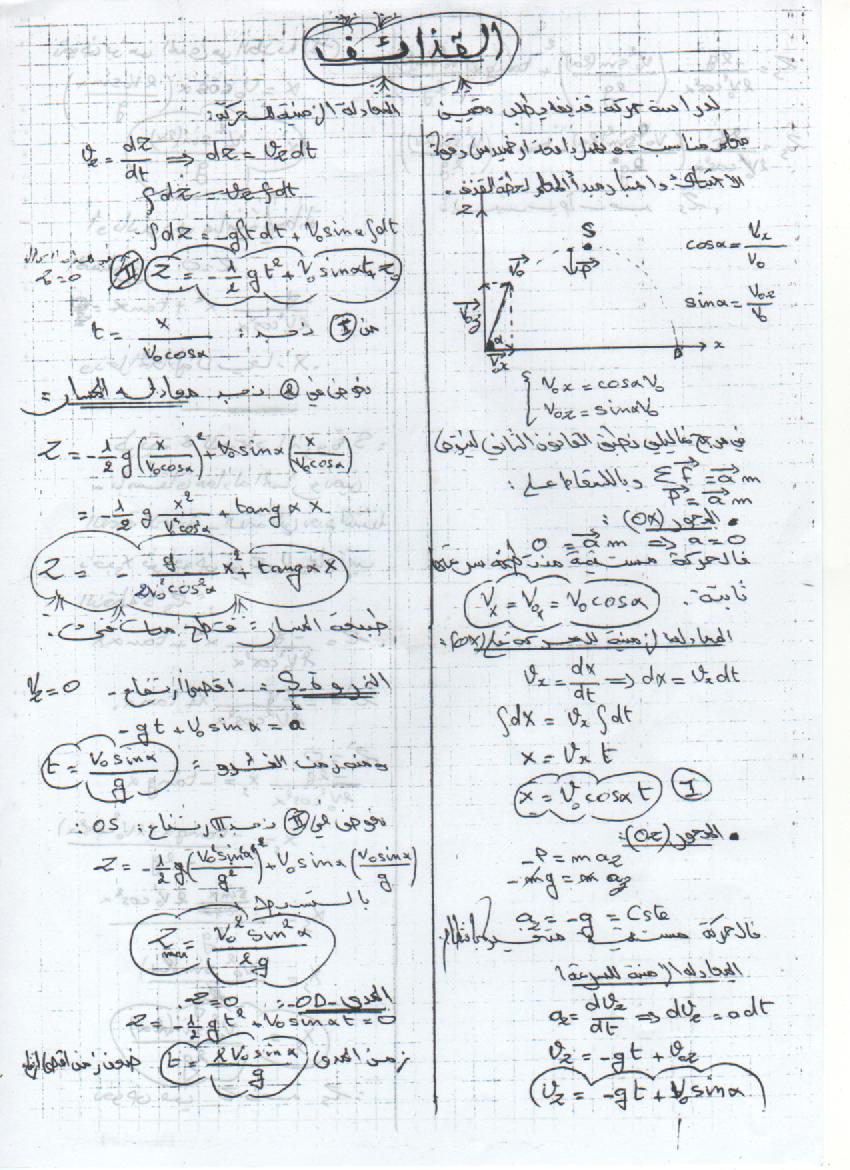 القذائف
لدراسة حركة قذيفة يجب تعيين
معلم مناسب و نهمل دافعة أرخميدس وقوة
الاحتكاك و اعتبار مبدأ المعلم لحظة القذف.
Z
S
V₀
P
V₀z
α
V₀x
D
x
cosα = Vx/V₀
sinα = V₀z/V₀
{ V₀x = cosαV₀
V₀z = sinαV₀
في مرجع غاليلي نطبق القانون الثاني لنيوتن
Σf = a m وبالإسقاط على :
P = a m
• المحور (OX) :
0 = a m ⇒ a = 0
فالحركة مستقيمة منتظمة سرعتها
ثابتة.
Vx = V₀x = V₀cosα
المعادلة الزمنية للحركة على (OX) :
Vx = dx/dt ⇒ dx = Vx dt
∫dx = Vx ∫dt
x = Vx t
x = V₀ cosα t I
• المحور (OZ) :
-P = m az
-mg = m az
az = -g = Cste
فالحركة مستقيمة متغيرة بانتظام
المعادلة الزمنية للسرعة :
az = dVz/dt ⇒ dVz = a dt
Vz = -gt + V₀z
Vz = -gt + V₀ sinα
المعادلة الزمنية للحركة :
Vz = dz/dt ⇒ dz = Vz dt
∫dz = Vz ∫dt
∫dz = -g∫t dt + V₀ sinα ∫dt
Z = -1/2 gt² + V₀ sinαt + z₀ II
z = 0
من I نجد : t = x/V₀cosα
نعوض في 2 نجد معادلة المسار :
Z = -1/2 g (x/V₀cosα)² + V₀ sinα (x/V₀cosα)
= -1/2 g x²/V₀²cos²α + tangα x
Z = - g/2V₀²cos²α x² + tangα x
طبيعة المسار : قطع مكافئ.
الذروة S : - أقصى ارتفاع - Vz = 0
-gt + V₀ sinα = 0
ومنه زمن الذروة : t = V₀ sinα/g
نعوض في II نجد الارتفاع : OS :
Z = -1/2 g (V₀²sin²α/g²) + V₀ sinα (V₀ sinα/g)
بالتبسيط
Zmax = V₀² sin²α/2g
المدى - OD - : Z = 0.
Z = -1/2 gt² + V₀ sinαt = 0
زمن المدى t = 2V₀ sinα/g ضعف زمن أقصى ارتفاع